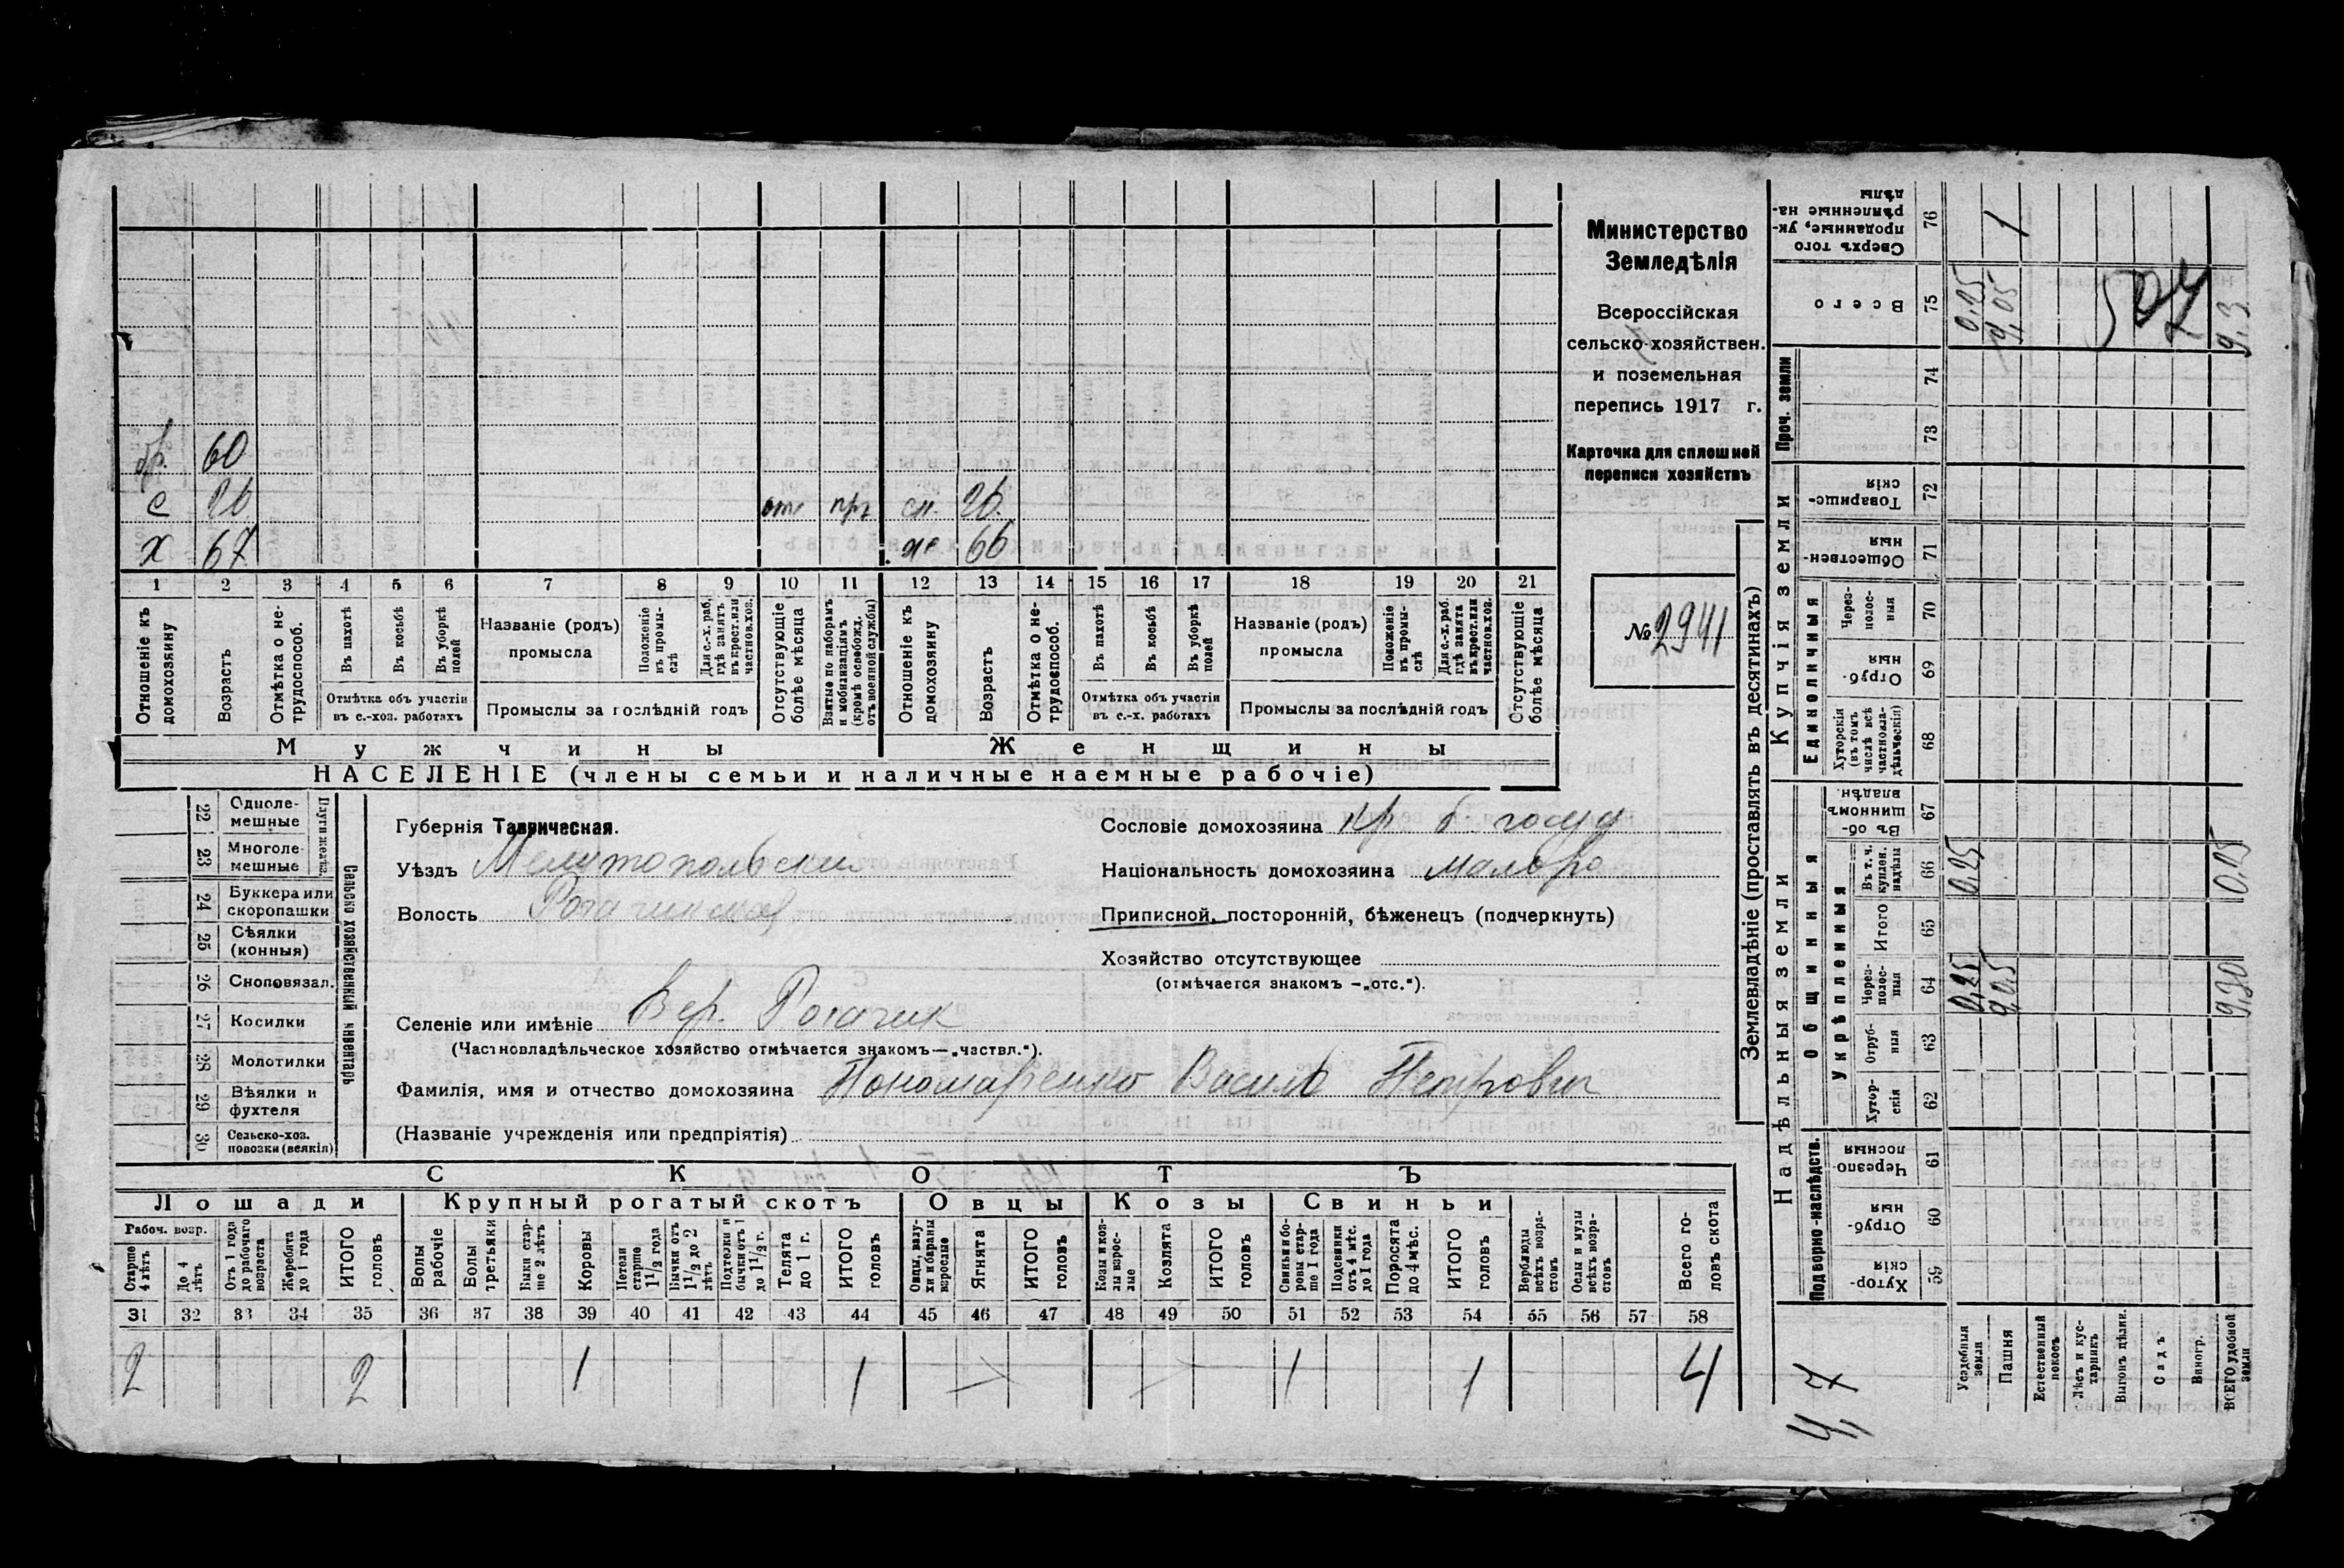 бр. 60
с 26 отс пр. сн. 26.
х 67 ж 66
1 2 3 4 5 6 7 8 9 10 11 12 13 14 15 16 17 18 19 20 21
Отношеніе къ домохозяину
Возрастъ
Отмѣтка о не-трудоспособ.
Въ пахотѣ
Въ косьбѣ
Въ уборкѣ полей
Отмѣтка объ участіи
въ с.-хоз. работахъ
Названіе (родъ)
промысла
Положеніе въ промы-слѣ
Для с.-х. раб. гдѣ занятъ въ крест. или частновл. хоз.
Промыслы за послѣдній годъ
Отсутствующіе болѣе мѣсяца
Взятые по наборамъ и мобилизаціямъ (кромѣ освобожд. отъ военной службы)
Отношеніе къ домохозяину
Возрастъ
Отмѣтка о не-трудоспособ.
Въ пахотѣ
Въ косьбѣ
Въ уборкѣ полей
Отмѣтка объ участіи
въ с.-х. работахъ
Названіе (родъ)
промысла
Положеніе въ промы-слѣ
Для с.-х. раб. гдѣ занята въ крест. или частновл. хоз.
Промыслы за послѣдній годъ
Отсутствующіе болѣе мѣсяца
Мужчины Женщины
НАСЕЛЕНІЕ (члены семьи и наличные наемные рабочіе)
Министерство
Земледѣлія
Всероссійская
сельско-хозяйствен.
и поземельная
перепись 1917 г.
Карточка для сплошной
переписи хозяйствъ
№ 2941
Сельско хозяйственный инвентарь
22 Одноле-
мешные
23 Многоле-
мешные
24 Буккера или
скоропашки
25 Сѣялки
(конныя)
26 Сноповязал.
27 Косилки
28 Молотилки
29 Вѣялки и
фухтеля
30 Сельско-хоз.
повозки (всякія)
Губернія Таврическая.
Уѣздъ Мелитопольский
Волость Рогачикская
Селеніе или имѣніе Вер. Рогачик
(Частновладѣльческое хозяйство отмѣчается знакомъ—„частвл.“).
Фамилія, имя и отчество домохозяина Пономаренко Василь Петрович
(Названіе учрежденія или предпріятія)
Сословіе домохозяина кр. б. госуд
Національность домохозяина малоро
Приписной, посторонній, бѣженецъ (подчеркнуть)
Хозяйство отсутствующее
(отмѣчается знакомъ —„отс.“).
СКОТЪ
Лошади Крупный рогатый скотъ Овцы Козы Свиньи
Рабоч. возр.
Старше 4 лѣтъ
До 4 лѣтъ
Отъ 1 года до рабочаго возраста
Жеребята до 1 года
ИТОГО головъ
Волы рабочіе
Волы третьяки
Быки стар-ше 2 лѣтъ
Коровы
Нетели старше 1 1/2 года
Бычки отъ 1 1/2 до 2 лѣтъ
Подтелки и бычки отъ 1 до 1 1/2 г.
Телята до 1 г.
ИТОГО головъ
Овцы, валу-хи и бараны взрослые
Ягнята
ИТОГО головъ
Козы и коз-лы взрос-лые
Козлята
ИТОГО головъ
Свиньи и бо-ровы стар-ше 1 года
Подсвинки отъ 4 мѣс. до 1 года
Поросята до 4 мѣс.
ИТОГО головъ
Верблюды всѣхъ возра-стовъ
Ослы и мулы всѣхъ возра-стовъ
Всего го-ловъ скота
31 32 33 34 35 36 37 38 39 40 41 42 43 44 45 46 47 48 49 50 51 52 53 54 55 56 57 58
2 2 1 1 1 1 4
Землевладѣніе (проставлять въ десятинахъ)
Надѣльныя земли Купчія земли Проч. земли
Подворно-наслѣдств. Общинныя Единоличныя
Укрѣпленныя
Хутор-скія 59
Отруб-ныя 60
Черезпо-лосныя 61
Хутор-скія 62
Отруб-ныя 63
Через-полос-ныя 64
Итого 65
Въ т. ч. куплен. надѣлы 66
Въ об-щинномъ владѣн. 67
Хуторскія (въ томъ числѣ всѣ частновла-дѣльческія) 68
Отруб-ныя 69
Через-полос-ныя 70
Обществен-ныя 71
Товарище-скія 72
73
74
Всего 75
Сверхъ того проданные, ук-рѣпленные на-дѣлы 76
Усадебныя земли 0,25 0,25 0,25
Пашня 9,05 9,05 1
Естественный покосъ
Лѣсъ и кус-тарникъ
Выгонъ дѣлим.
Садъ
Виногр.
ВСЕГО удобной земли 9,30 0,25 9,3
507